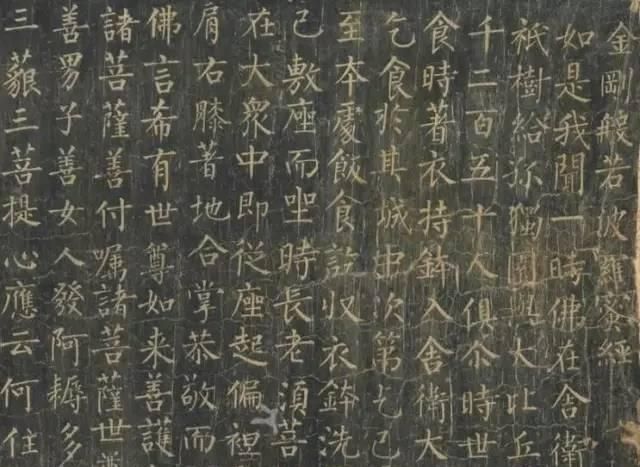 金剛般若波羅蜜經
如是我聞一時佛在舍衛
祇樹給孤獨園與大比丘
千二百五十人俱尒時世
食時著衣持鉢入舍衛大
乞食於其城中次第乞已
至本處飯食訖収衣鉢洗
已敷座而坐時長老湏菩
在大衆中即從座起偏袒
肩右膝著地合掌恭敬而
佛言希有世尊如来善護
諸菩薩善付嘱諸菩薩世尊
善男子善女人發阿耨多
三藐三菩提心應云何住